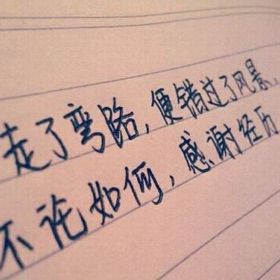 走了弯路，便错过了风景，
不论如何，感谢经历